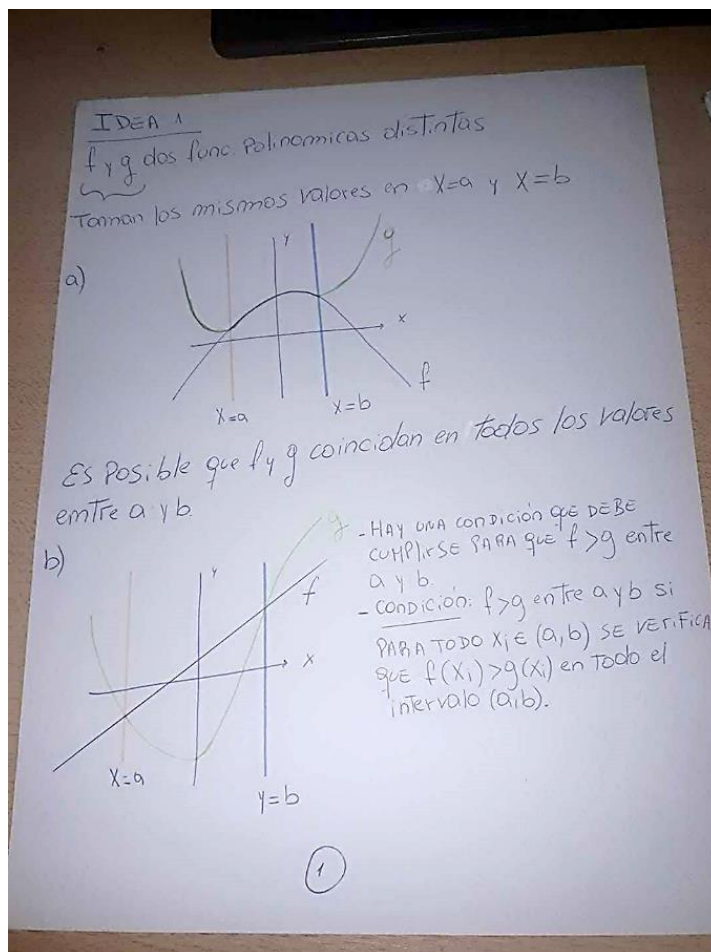 IDEA 1
f y g dos func. Polinomicas distintas
Toman los mismos valores en x=a y x=b
a)
y
g
x
f
x=a
x=b
Es Posible que f y g coincidan en todos los valores
emtre a y b.
b)
g
y
f
x
x=a
y=b
- HAY UNA CONDICIÓN QUE DEBE
CUMPLIRSE PARA QUE f>g entre
a y b.
- CONDICIÓN: f>g entre a y b si
PARA TODO Xi ∈ (a,b) SE VERIFICA
QUE f(xi)>g(xi) en todo el
intervalo (a,b).
1